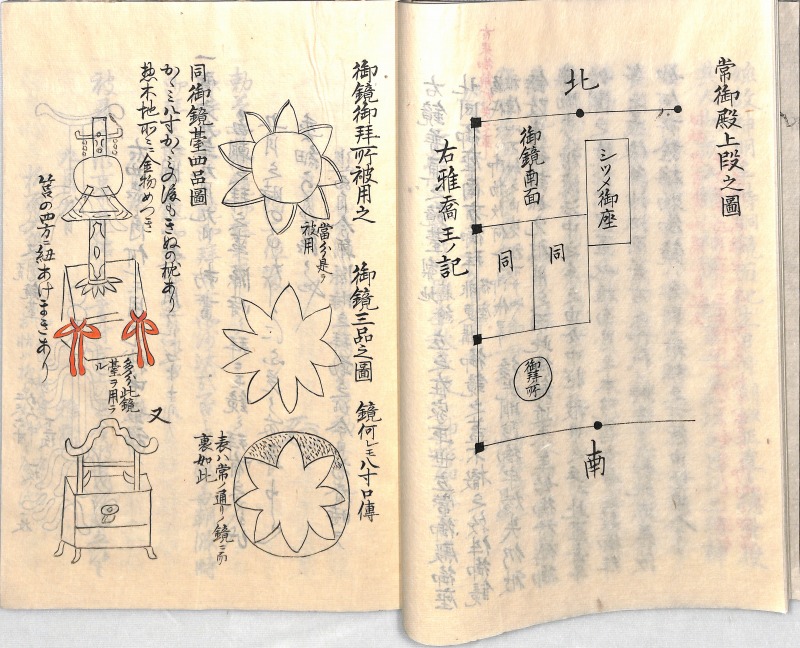 常御殿上段之圖
北
シツメ御座
御鏡南面
同
同
御拜所
南
右雅喬王ノ記
御鏡御拜所被用之
御鏡三品之圖
鏡何レモ八寸口傳
當分是ヲ
被用
表ハ常ノ通リノ鏡ニ而
裏如此
同御鏡臺四品圖
かゝミ八寸かゝミの後ももきぬの枕あり
惣木地所ミニ金物めつき
筥の四方ニ紐あけまきあり
多分此鏡
臺ヲ用ラ
ル
又